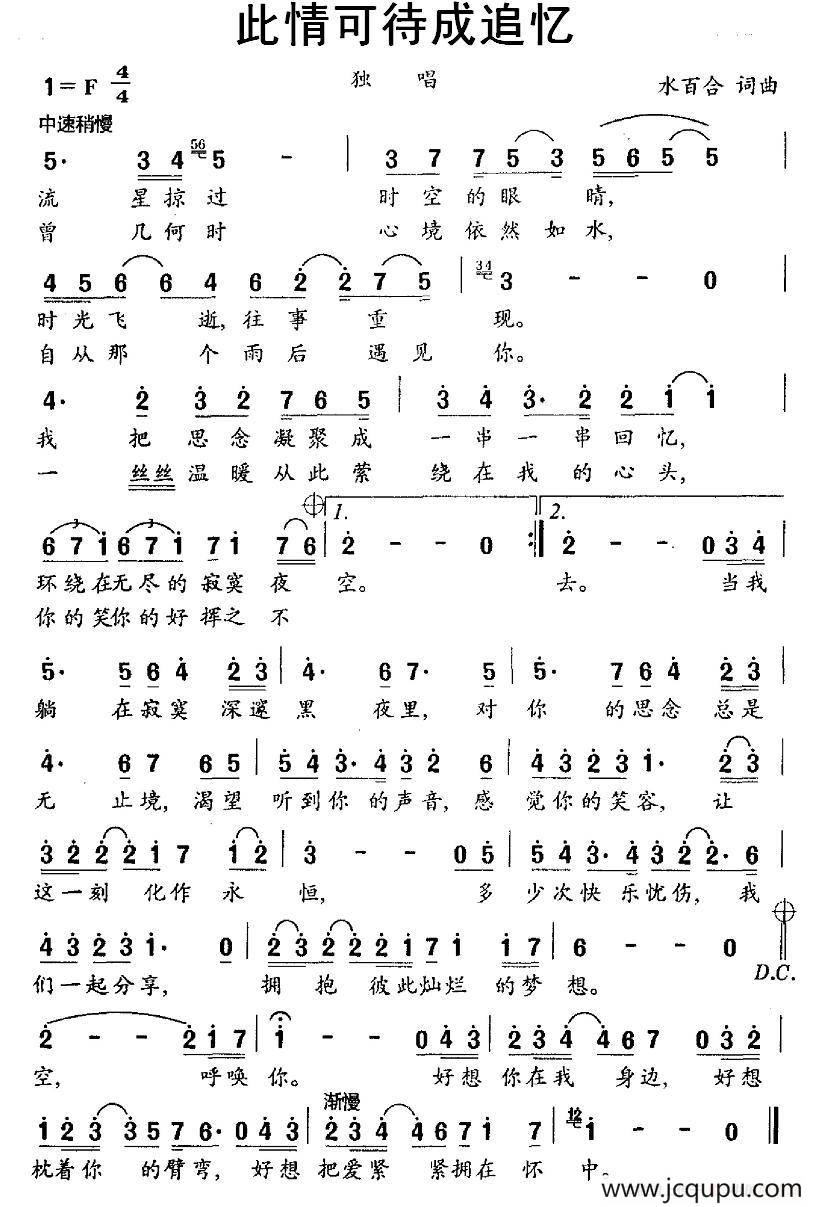 此情可待成追忆
1=F 4/4 独唱 水百合 词曲
中速稍慢
5· 3 4 56 5 - | 3 7 7 5 3 5 6 5 5 |
流 星掠过 时空的眼 睛,
曾 几何时 心境依然如水,
4 5 6 6 4 6 2 2 7 5 | 34 3 - - 0 |
时光飞 逝,往事重 现。
自从那 个雨后遇见 你。
4· 2 3 2 7 6 5 | 3 4 3· 2 2 1 1 |
我 把思念凝聚成 一串一串回忆,
一 丝丝温暖从此萦 绕在我的心头,
1. 2.
6 7 1 6 7 1 7 1 7 6 | 2 - - 0 :| 2 - - 0 3 4 |
环绕在无尽的寂寞夜 空。 去。 当我
你的笑你的好挥之不
5· 5 6 4 2 3 | 4· 6 7· 5 | 5· 7 6 4 2 3 |
躺 在寂寞深邃黑 夜里,对你 的思念总是
4· 6 7 6 5 | 5 4 3· 4 3 2 6 | 4 3 2 3 1· 2 3 |
无 止境,渴望听到你的声音,感觉你的笑容,让
3 2 2 2 1 7 1 2 | 3 - - 0 5 | 5 4 3· 4 3 2 2· 6 |
这一刻 化作永 恒, 多少次快乐忧伤,我
4 3 2 3 1· 0 | 2 3 2 2 2 1 7 1 1 7 | 6 - - 0
们一起分享, 拥 抱 彼此灿烂的梦想。
D.C.
2 - - 2 1 7 | 1 - - 0 4 3 | 2 3 4 4 6 7 0 3 2 |
空, 呼唤你。 好想你在我 身边,好想
渐慢
1 2 3 3 5 7 6· 0 4 3 | 2 3 4 4 6 7 1 7 | 12 1 - - 0 ‖
枕着你 的臂弯,好想把爱紧 紧拥在怀 中。
www.jcqupu.com